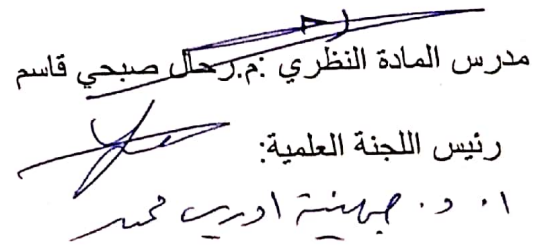 مدرس المادة النظري :م.رحال صبحي قاسم
رئيس اللجنة العلمية:
ا. د. جهينة ادريس محمد